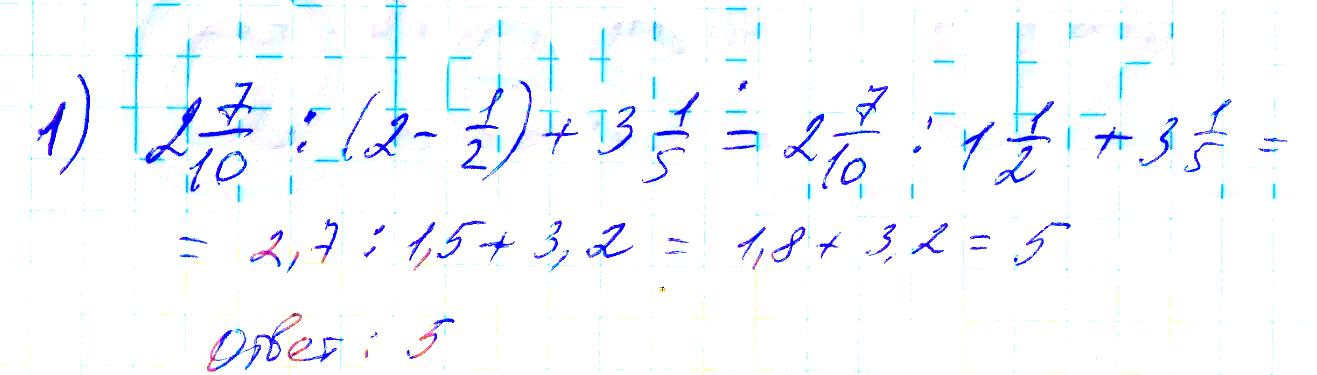 1) 2 7/10 : (2 - 1/2) + 3 1/5 = 2 7/10 : 1 1/2 + 3 1/5 =
= 2,7 : 1,5 + 3,2 = 1,8 + 3,2 = 5
Ответ: 5